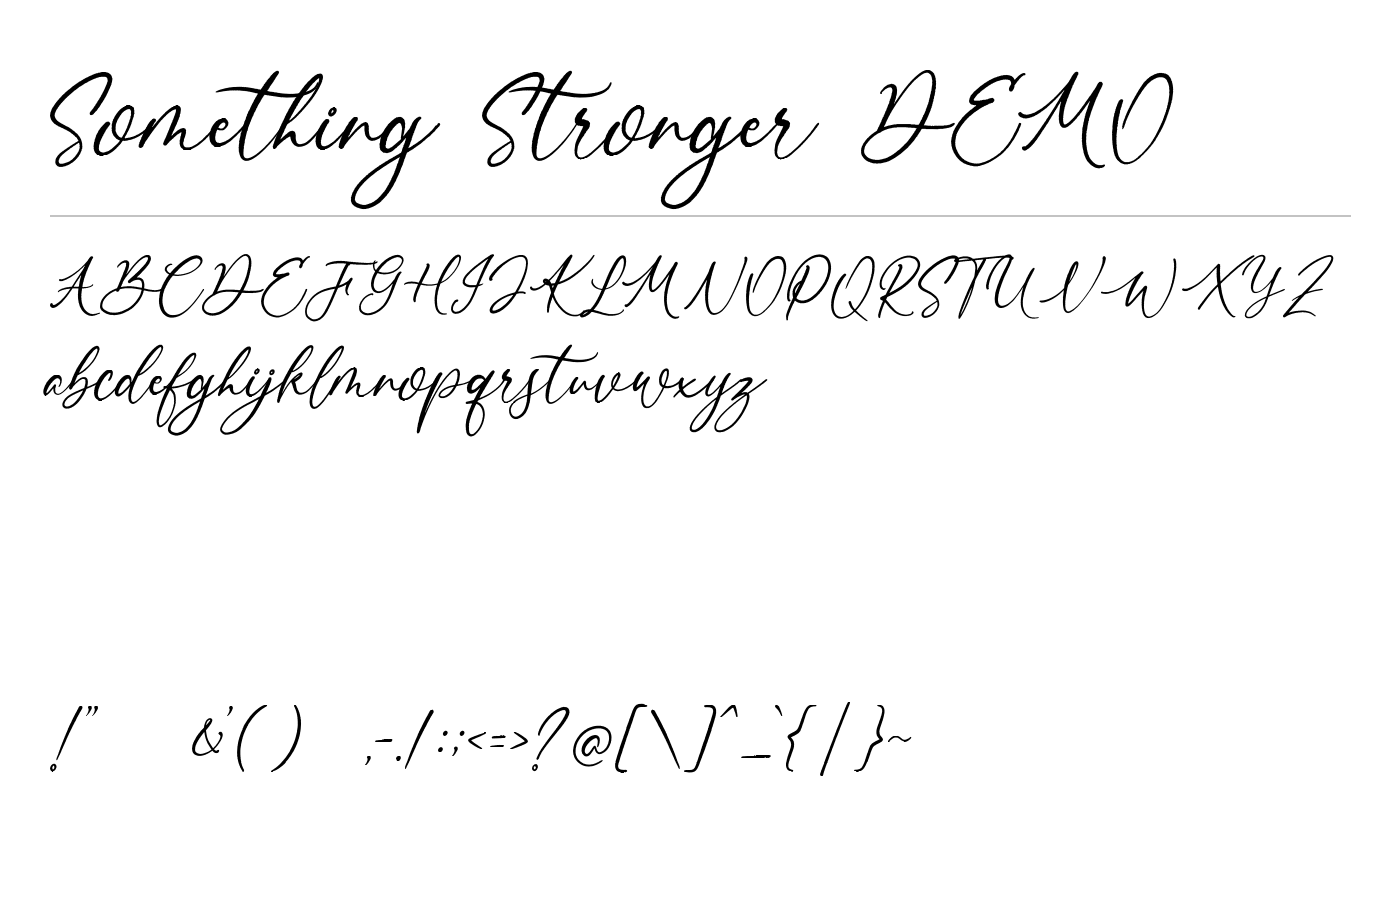 Something Stronger DEMO
ABCDEFGHIJKLMNOPQRSTUVWXYZ
abcdefghijklmnopqrstuvwxyz
!" &'( ) ,-./:;<=>?@[\]^_`{|}~